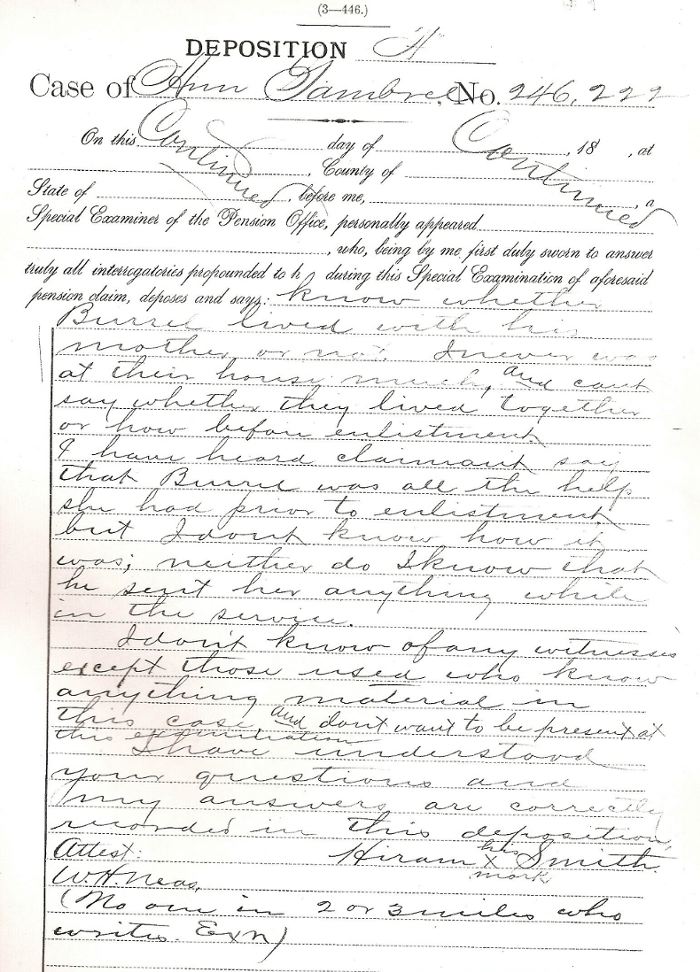 (3—446.)
DEPOSITION H
Case of Ann Gambrel, No. 246,222
On this Continued day of Continued, 18 , at
, County of
State of , before me, , a
Special Examiner of the Pension Office, personally appeared
, who, being by me first duly sworn to answer
truly all interrogatories propounded to h during this Special Examination of aforesaid
pension claim, deposes and says: know whether
Burrel lived with his
mother or not. I never was
at their house much, and cant
say whether they lived together
or how before enlistment
I have heard claimant say
that Burrel was all the help
she had prior to enlistment
but I dont know how it
was; neither do I know that
he sent her anything while
in the service.
I don't know of any witnesses
except those used who know
anything material in
this case and don't want to be present at
this examination
I have understood
your questions and
my answers are correctly
recorded in this deposition,
Attest: Hiram his x mark Smith
W.H. Neas,
(No one in 2 or 3 miles who
writes. Exn)